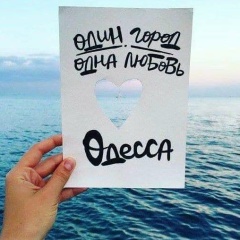 ОДИН ГОРОД
ОДНА ЛЮБОВЬ
ОДЕССА